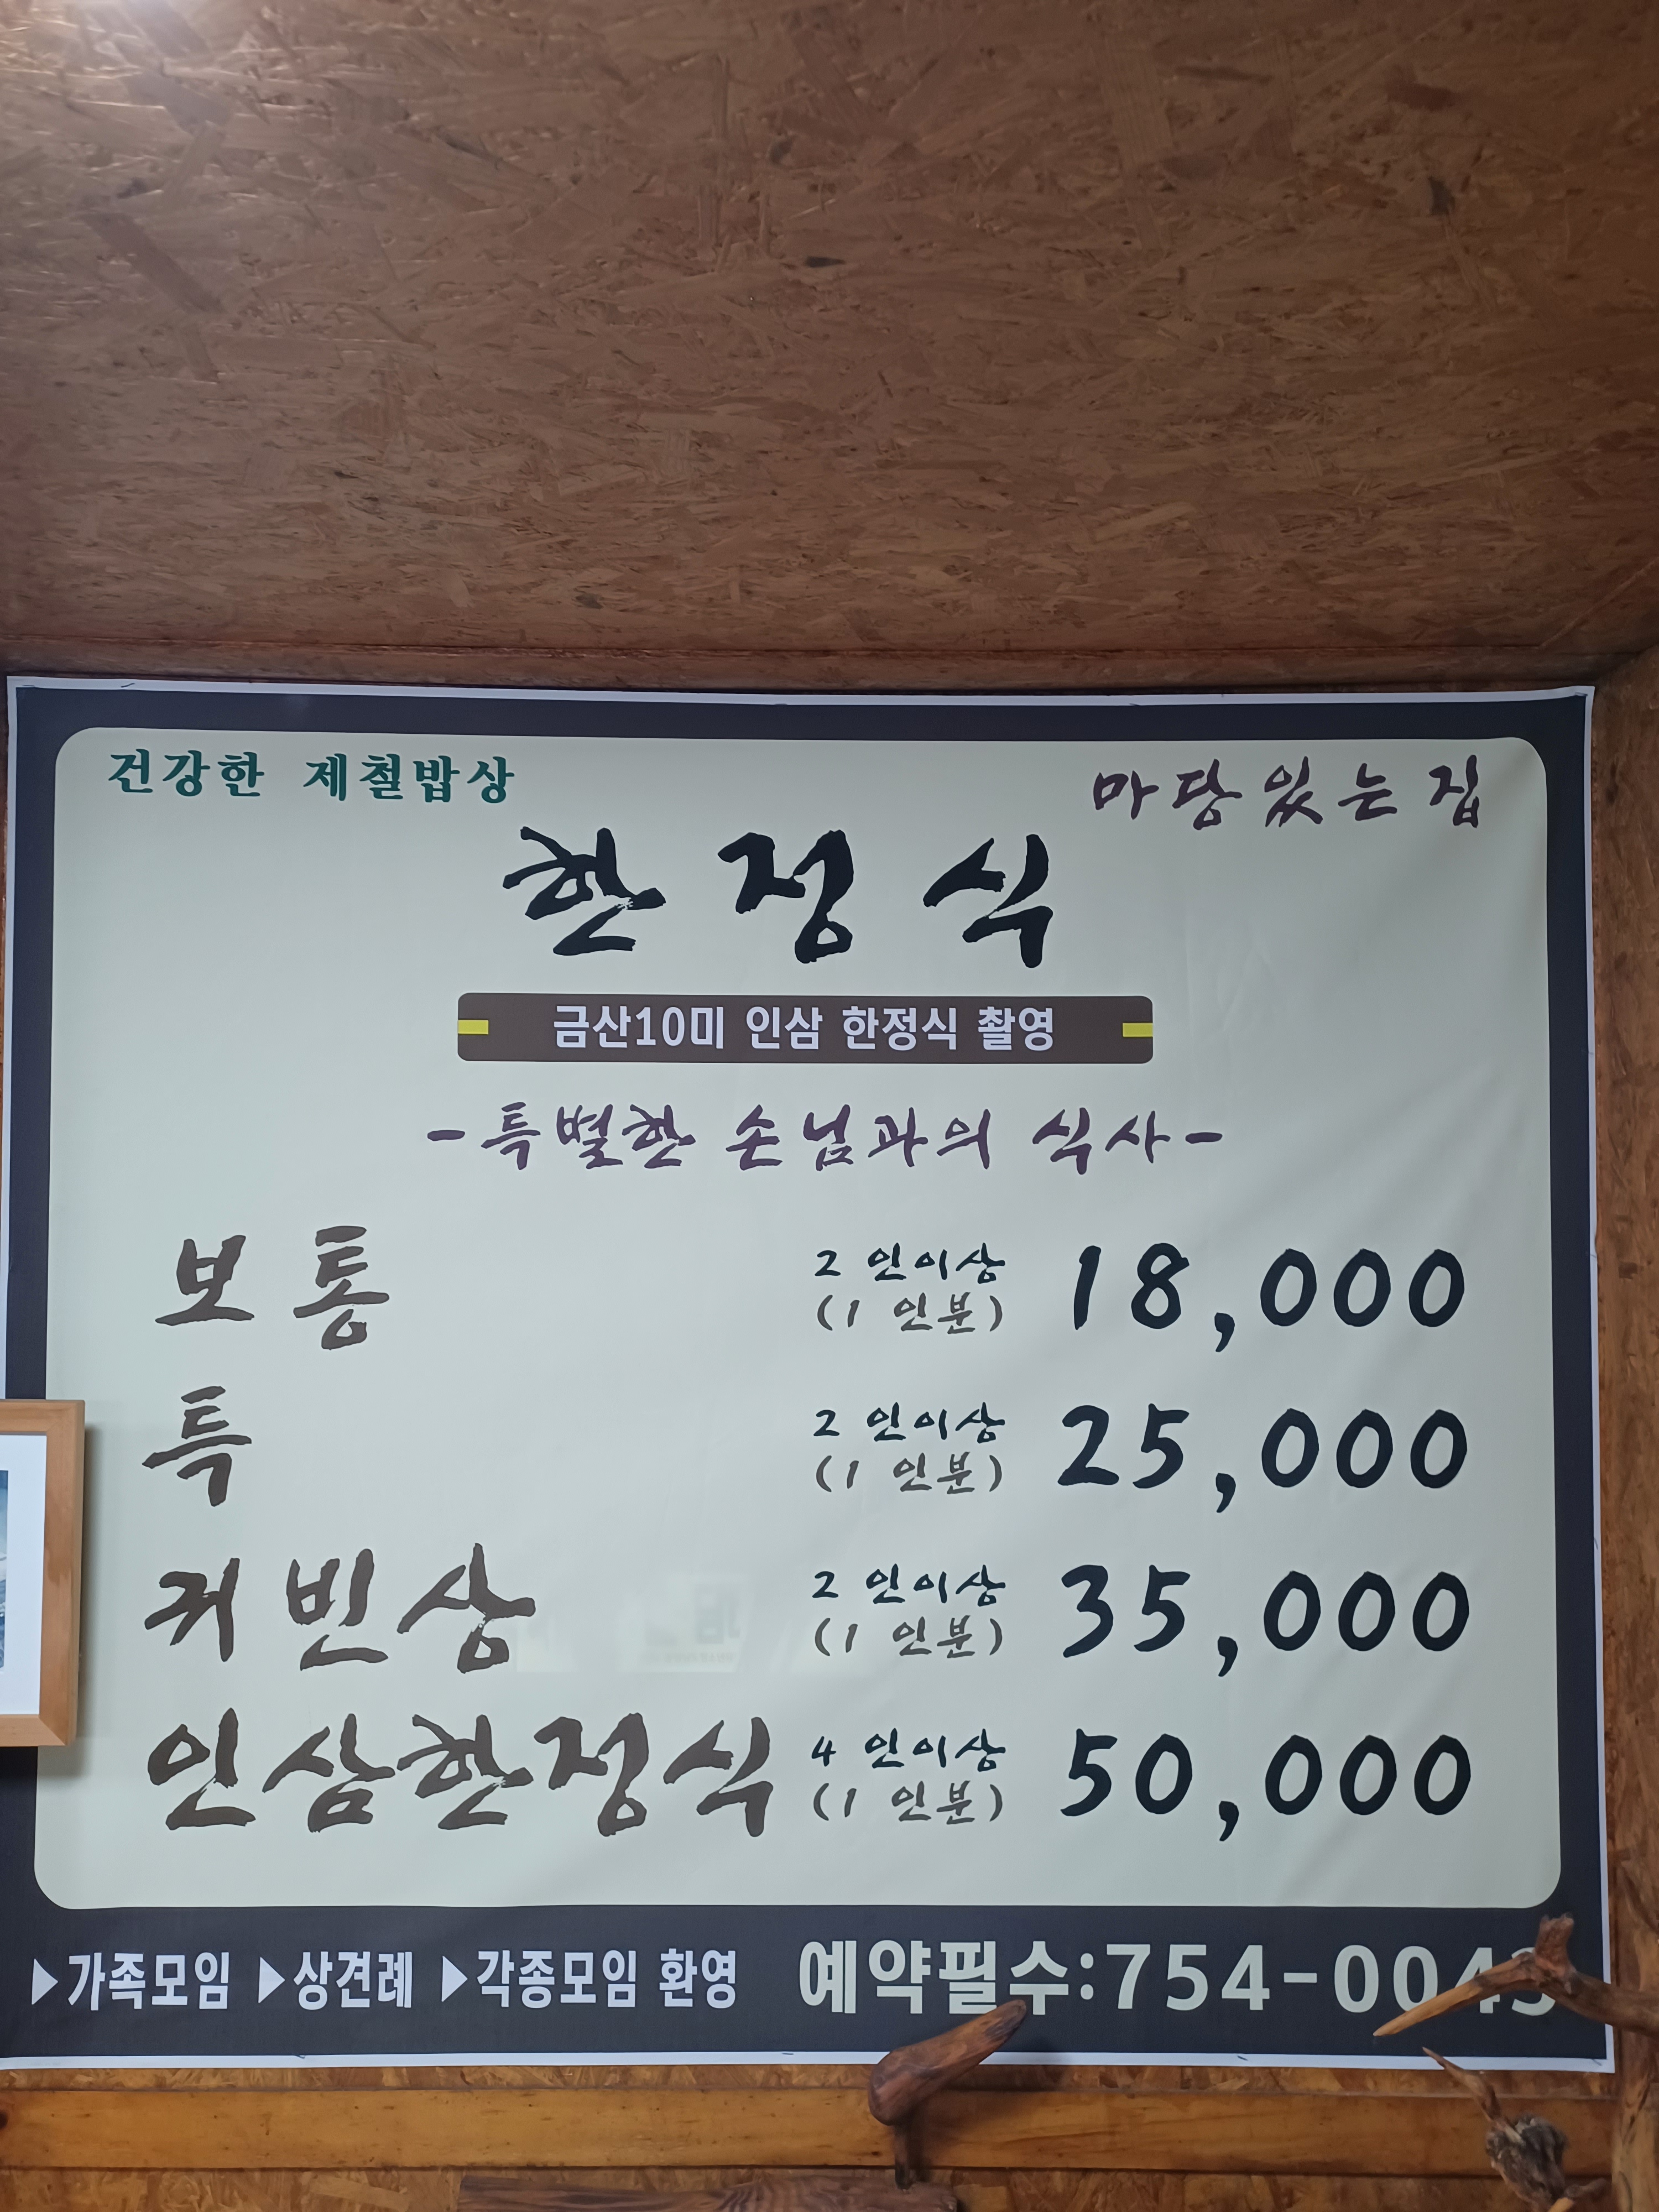 건강한 제철밥상
마당있는집
한정식
금산10미 인삼 한정식 촬영
-특별한 손님과의 식사-
보통 2인이상 (1인분) 18,000
특 2인이상 (1인분) 25,000
귀빈상 2인이상 (1인분) 35,000
인삼한정식 4인이상 (1인분) 50,000
▶가족모임 ▶상견례 ▶각종모임 환영 예약필수:754-0043